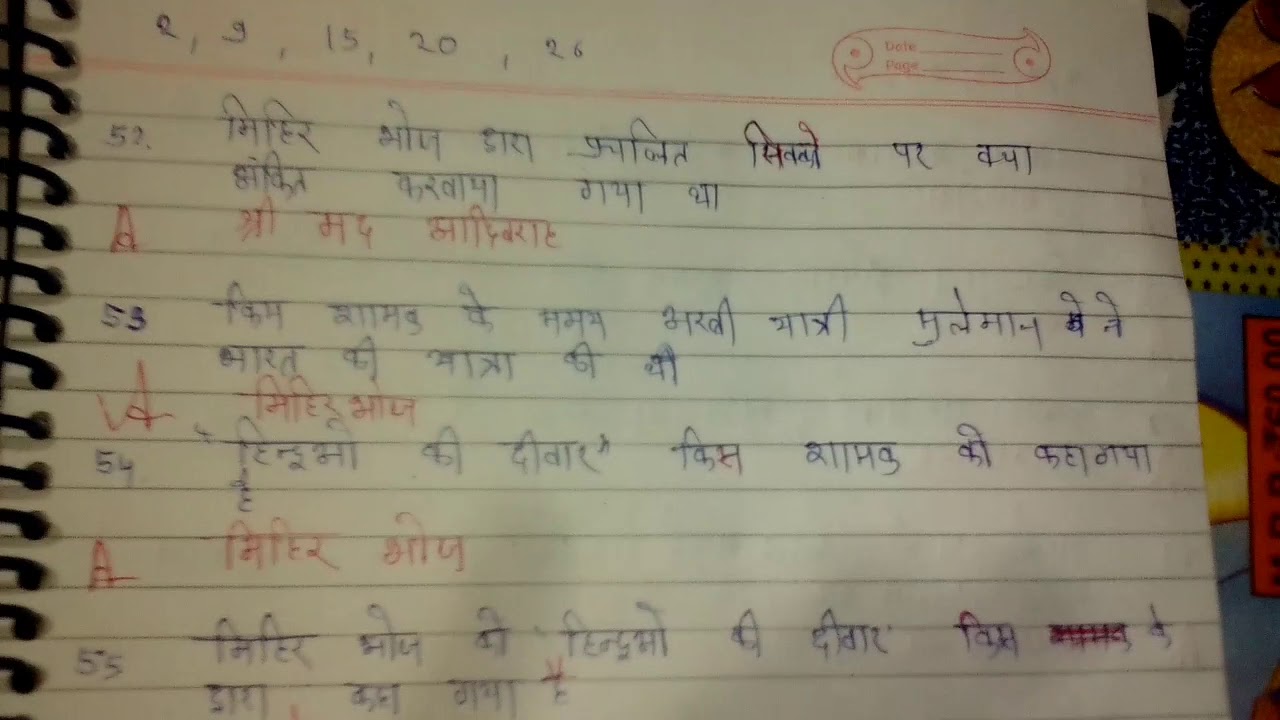 2, 9, 15, 20, 26
Date
Page
52. मिहिर भोज द्वारा प्रचलित सिक्को पर क्या
अंकित करवाया गया था
A श्री मद आदिवराह
53 किस शासक के समय अरबी यात्री सुलेमान ने
भारत की यात्रा की थी
A मिहिर भोज
54 "हिन्दुओ की दीवार" किस शासक को कहा गया
है
A मिहिर भोज
55 मिहिर भोज को 'हिन्दुओ की दीवार' किस के
द्वारा कहा गया है